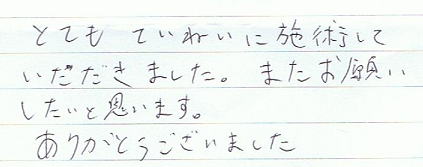 とても ていねいに施術して
いただきました。またお願い
したいと思います。
ありがとうございました